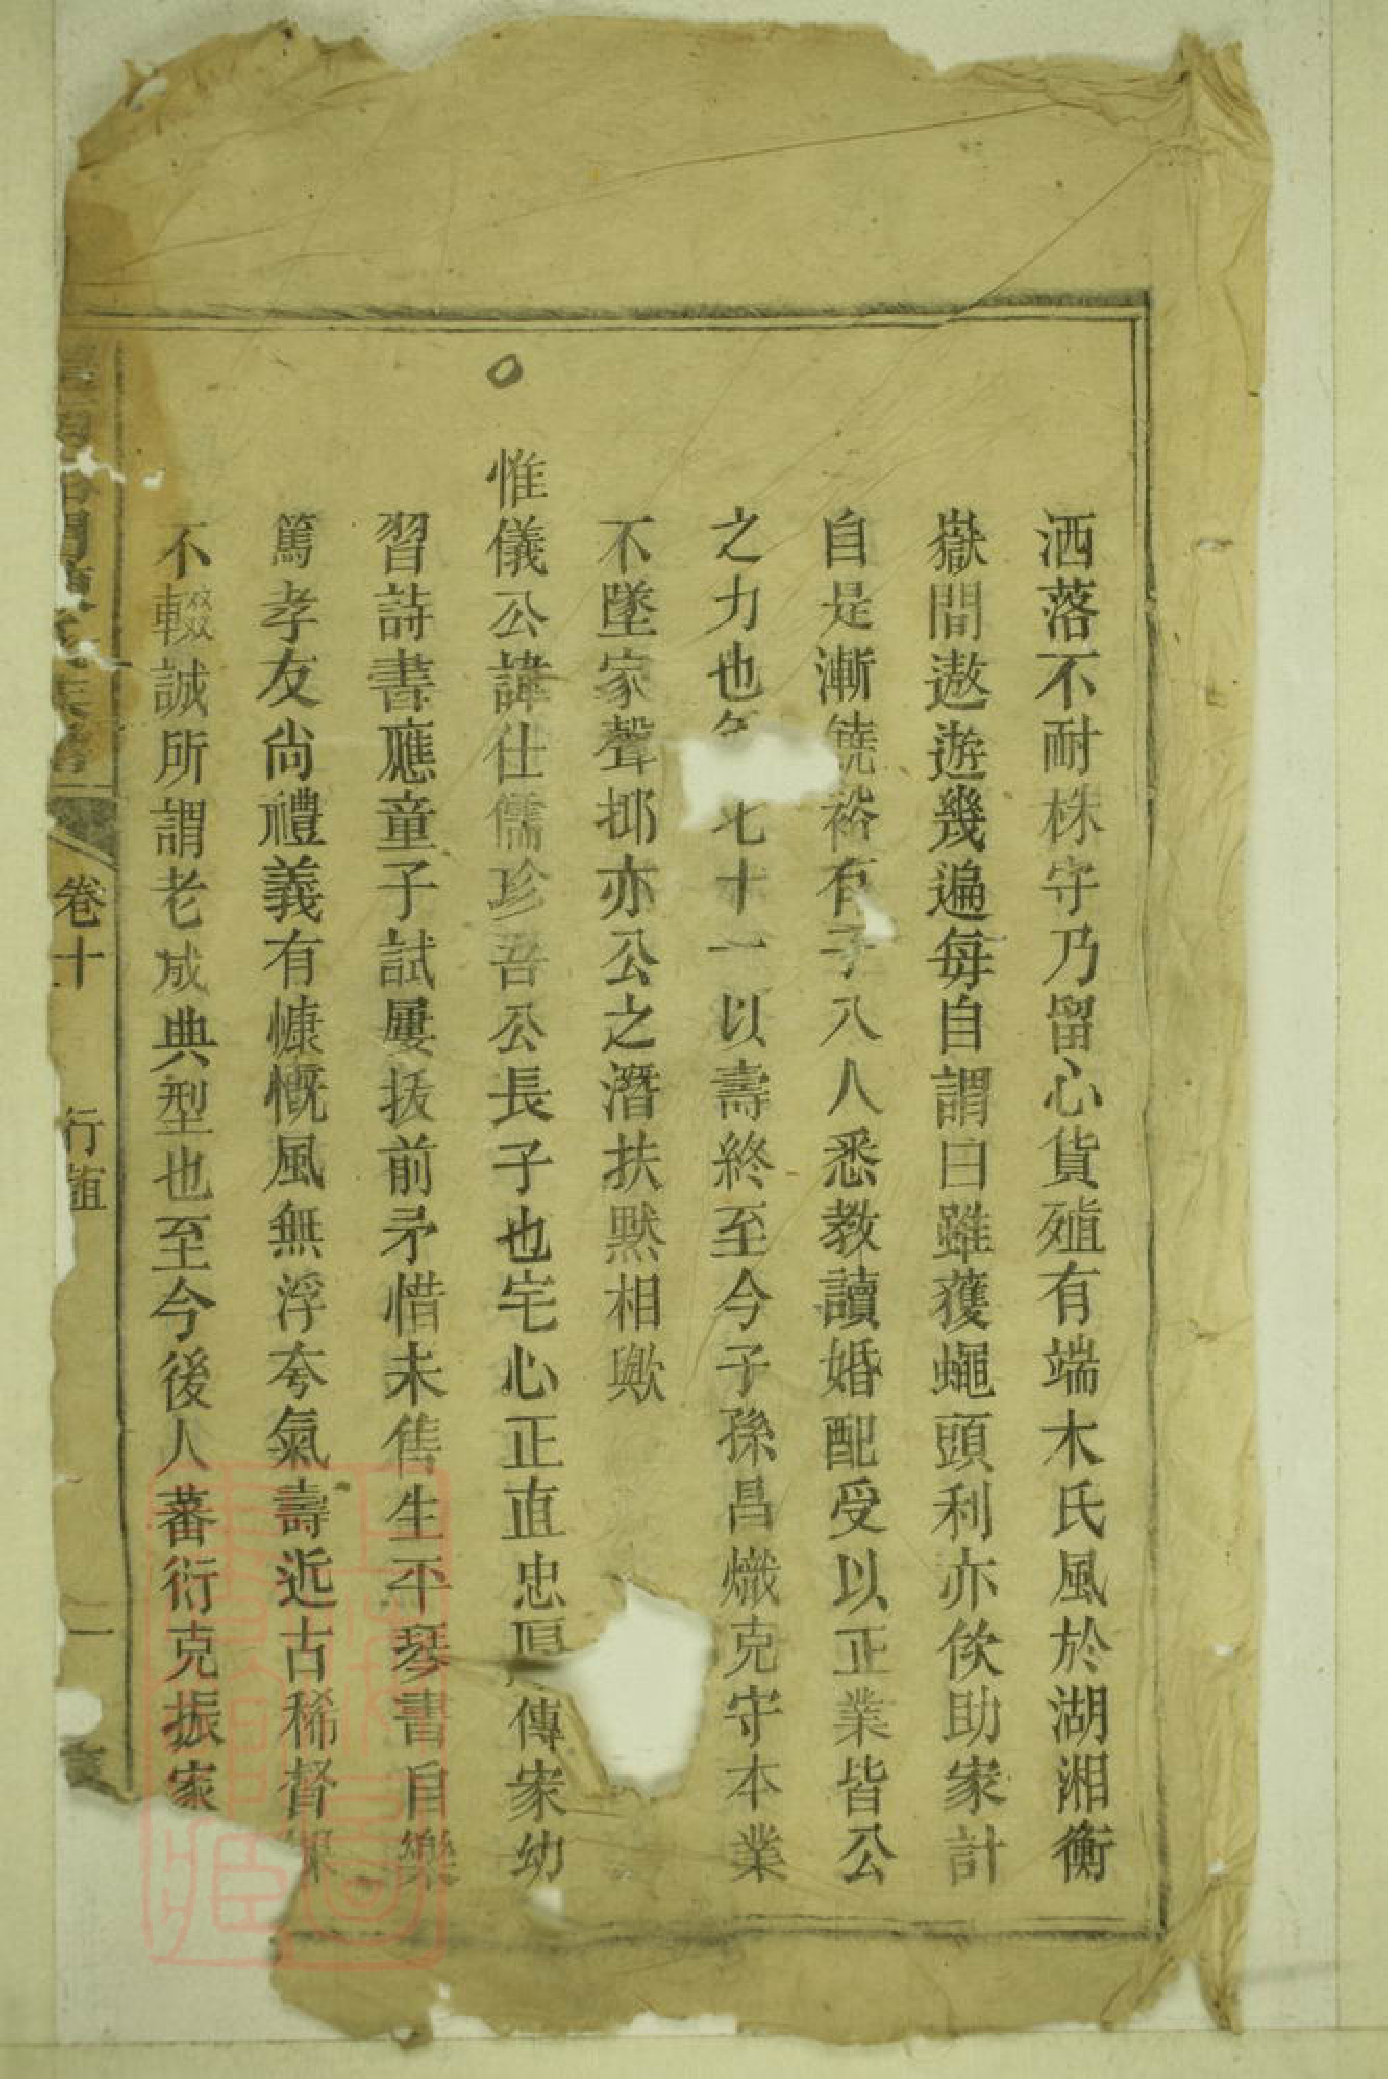 洒落不耐株守乃留心貨殖有端木氏風於湖湘衡
嶽間遨遊幾遍每自謂曰雖獲蠅頭利亦佽助家計
自是漸饒裕有子八人悉教讀婚配受以正業皆公
之力也年七十一以壽終至今子孫昌熾克守本業
不墜家聲抑亦公之潛扶默相歟
惟儀公諱仕儒珍吾公長子也宅心正直忠厚傳家幼
習詩書應童子試屢拔前矛惜未售生平琴書自樂
篤孝友尚禮義有慷慨風無浮夸氣壽近古稀督課
不輟誠所謂老成典型也至今後人蕃衍克振家
卷十
行
一